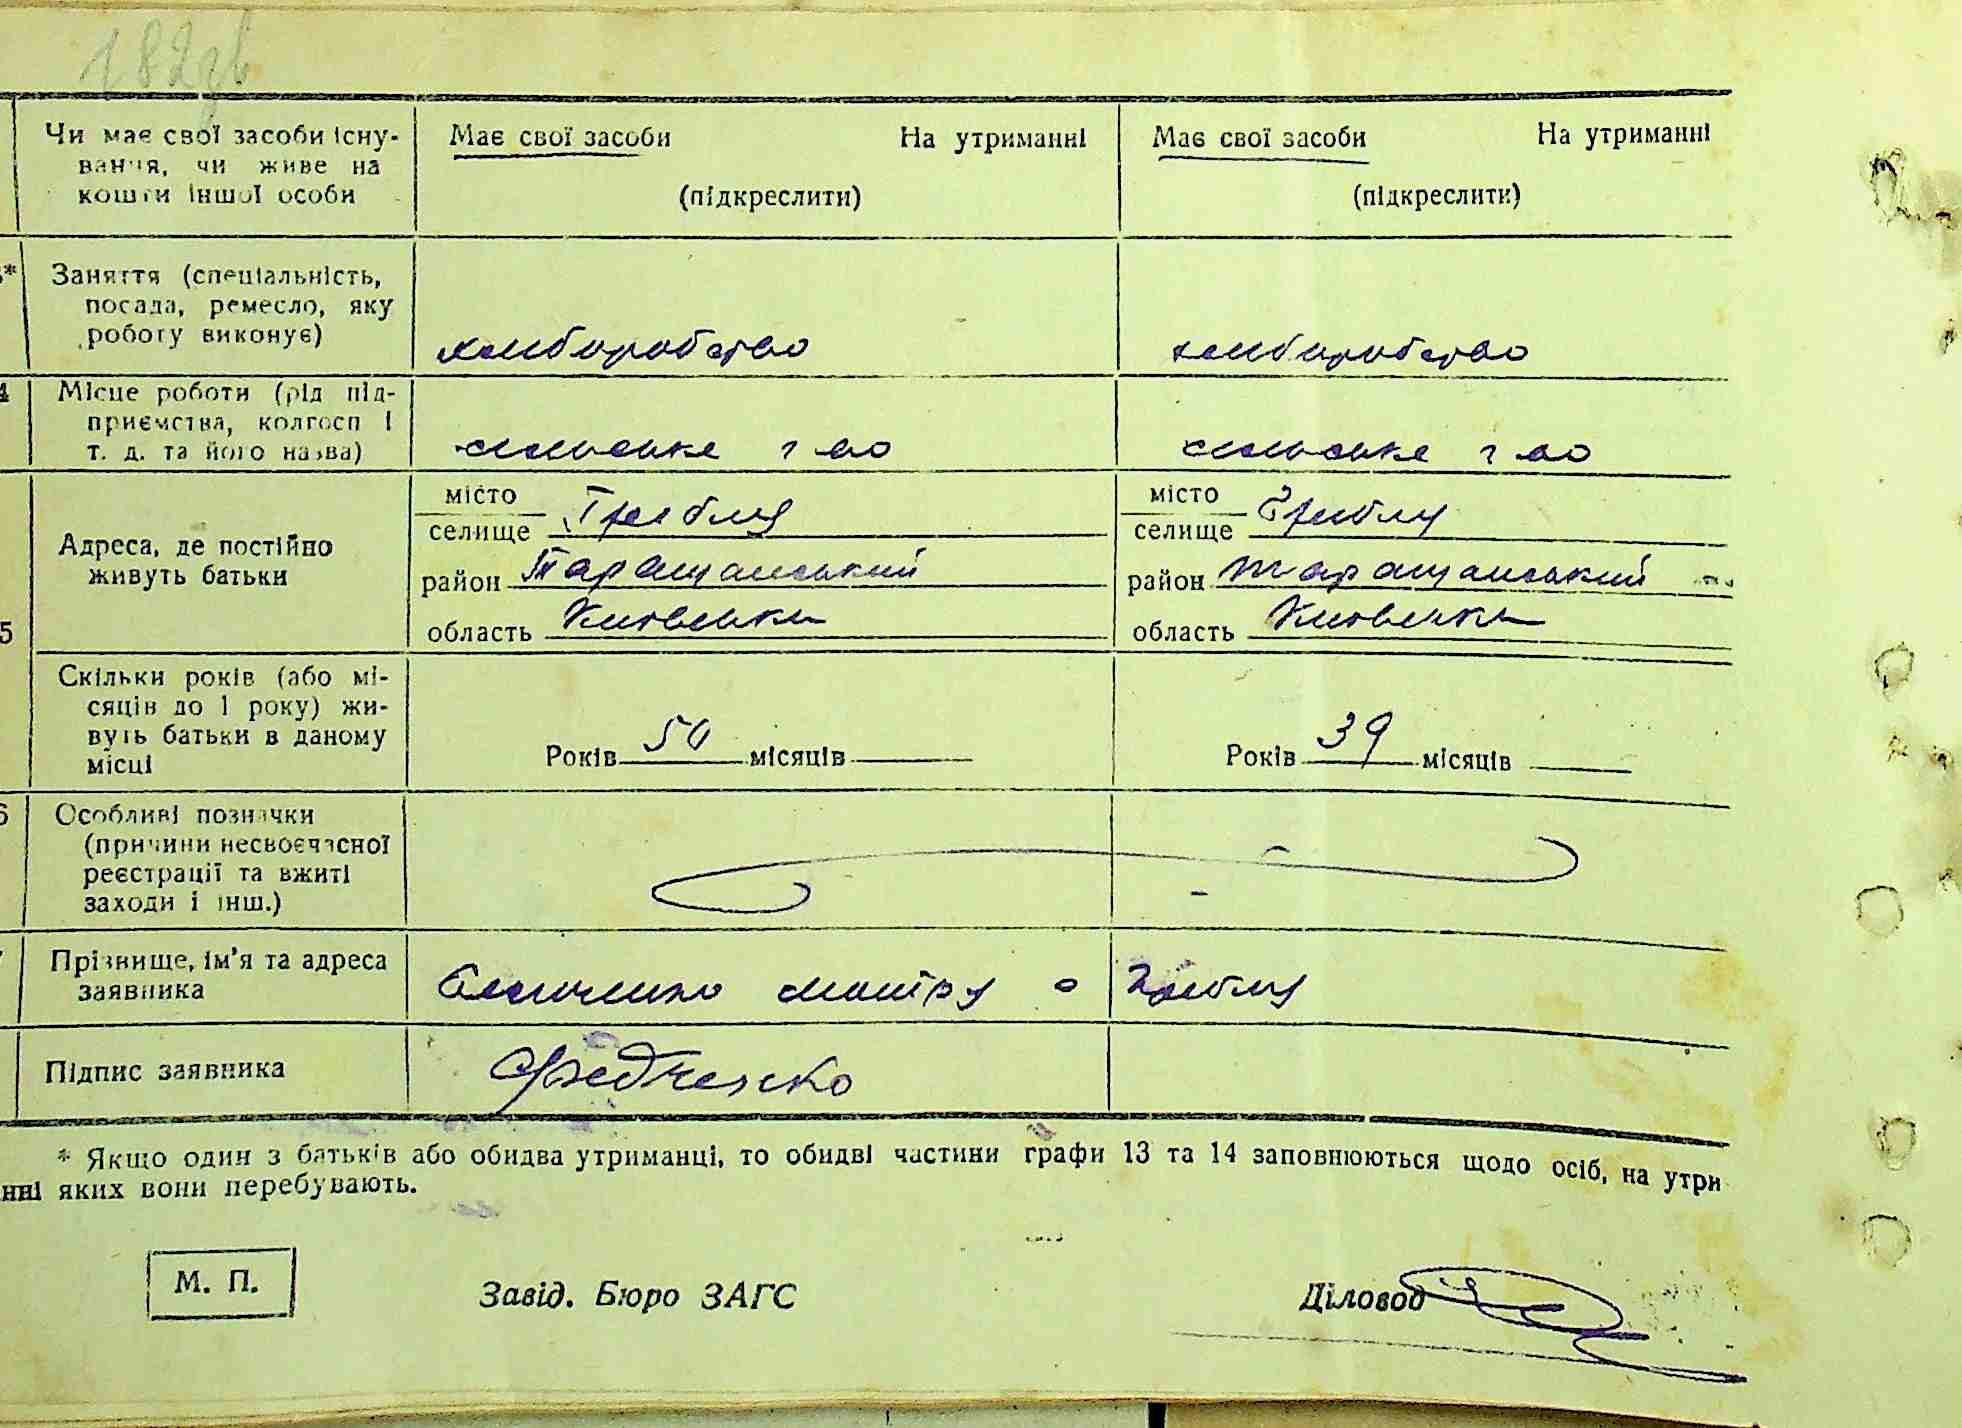 182 зв
Чи має свої засоби існу- Має свої засоби На утриманні Має свої засоби На утриманні
вання, чи живе на
кошти іншої особи (підкреслити) (підкреслити)
Заняття (спеціальність,
посада, ремесло, яку
роботу виконує) хлиборобство хлиборобство
4 Місце роботи (рід під-
приємства, колгосп і
т. д. та його назва) сільське г во сільське г во
місто місто
селище Гребля селище Гребля
Адреса, де постійно
живуть батьки район Таращанський район Таращанський
5 область Киевська область Киевська
Скільки років (або мі-
сяців до 1 року) жи-
вуть батьки в даному
місці Років 50 місяців Років 39 місяців
6 Особливі позначки
(причини несвоєчасної
реєстрації та вжиті
заходи і інш.)
Прізвище, ім'я та адреса
заявника с Гребля
Підпис заявника Федченко
* Якщо один з батьків або обидва утриманці, то обидві частини графи 13 та 14 заповнюються щодо осіб, на утри
нні яких вони перебувають.
М. П. Завід. Бюро ЗАГС Діловод